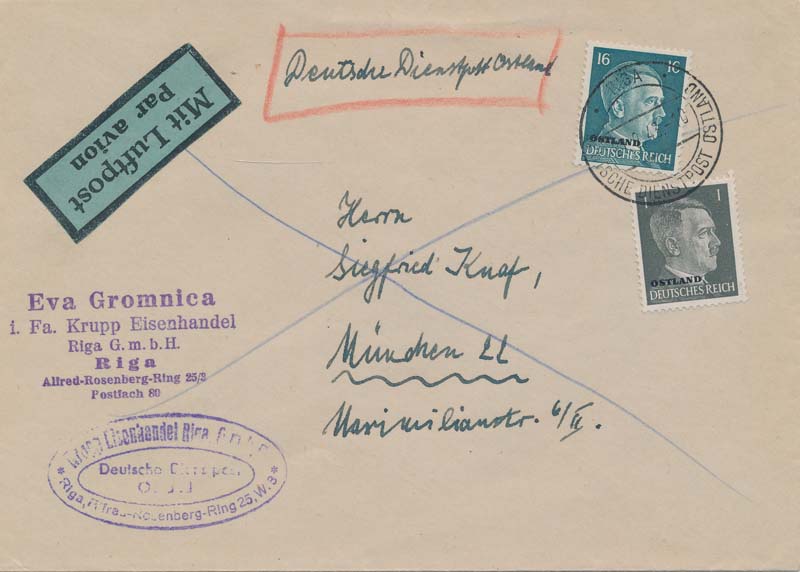 Deutsche Dienstpost Ostland
Mit Luftpost
Par avion
16 16
OSTLAND
DEUTSCHES REICH
RIGA
DEUTSCHE DIENSTPOST OSTLAND
1
OSTLAND
DEUTSCHES REICH
Herrn
Siegfried Knaf,
München 22
Maximilianstr. 6/II.
Eva Gromnica
i. Fa. Krupp Eisenhandel
Riga G.m.b.H.
Riga
Alfred-Rosenberg-Ring 25/3
Postfach 80
Krupp Eisenhandel Riga G.m.b.H.
Deutsche Dienstpost
* Riga, Alfred-Rosenberg-Ring 25, W. 3 *